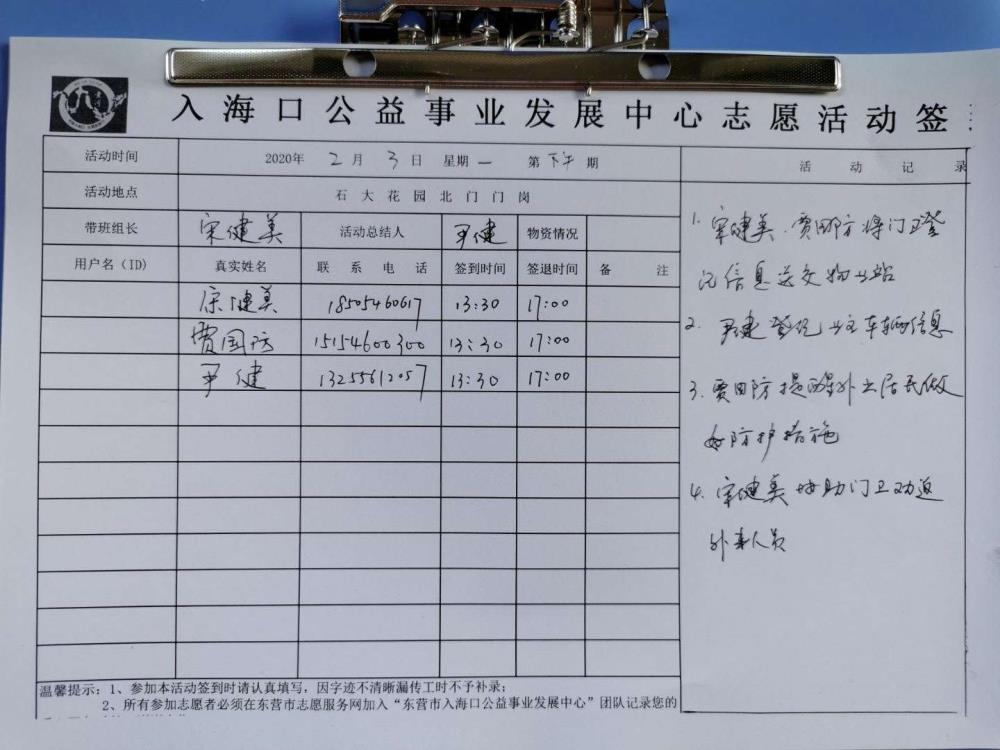 入海口公益事业发展中心志愿活动签
活动时间 2020年 2 月 3 日 星期 一 第 下午 期
活动地点 石大花园北门门岗
带班组长 宋健美 活动总结人 尹健 物资情况
用户名(ID) 真实姓名 联系电话 签到时间 签退时间 备注
宋健美 18505460617 13:30 17:00
费国防 15154600300 13:30 17:00
尹健 13255612057 13:30 17:00
温馨提示:1、参加本活动签到时请认真填写,因字迹不清晰漏传工时不予补录;
2、所有参加志愿者必须在东营市志愿服务网加入“东营市入海口公益事业发展中心”团队记录您的
活动记录
1. 宋健美、费国防将门卫登
记信息送交物业站
2. 尹健登记业主车辆信息
3. 费国防提醒外出居民做
好防护措施
4. 宋健美协助门卫劝返
外来人员